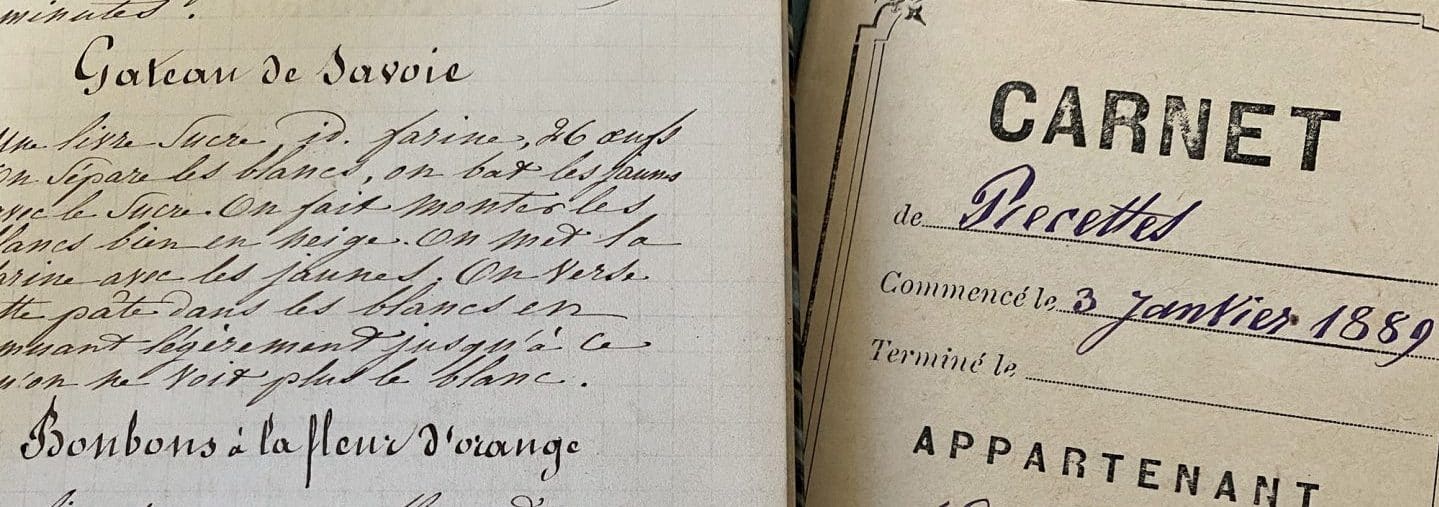 minutes.
Gateau de Savoie
Une livre Sucre id. farine, 26 œufs
On Sépare les blancs, on bat les jaunes
avec le Sucre. On fait monter les
blancs bien en neige. On met la
farine avec les jaunes. On verse
tte pâte dans les blancs en
muant légèrement jusqu'à ce
qu'on ne voit plus le blanc.
Bonbons à la fleur d'orange
CARNET
de Recettes
Commencé le 3 Janvier 1889
Terminé le
APPARTENANT